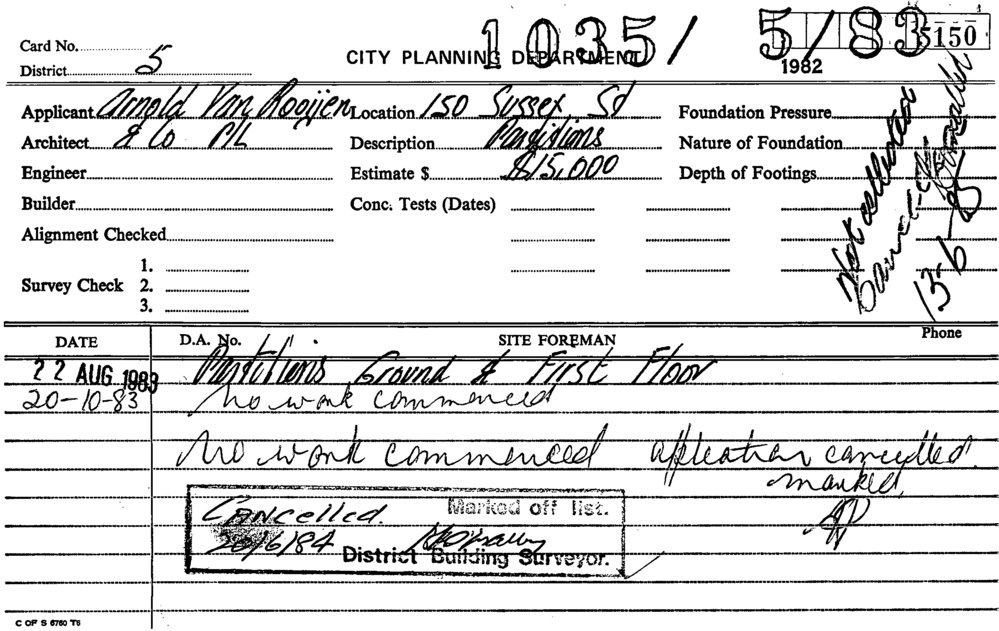 1035/ 5/83 5150
Card No.
District 5
CITY PLANNING DEPARTMENT
1982
Applicant Arnold Van Rooijen Location 150 Sussex St Foundation Pressure
Architect & Co P/L Description Partitions Nature of Foundation
Engineer Estimate $ $15,000 Depth of Footings
Builder Conc. Tests (Dates)
Alignment Checked
1.
Survey Check 2.
3.
Not
13-6-8
DATE D.A. No. SITE FOREMAN Phone
22 AUG 1983 Partitions Ground & First Floor
20-10-83 No work commenced
No work commenced application cancelled.
marked
Cancelled. Marked off list.
20/6/84 District Building Surveyor.
C OF S 6760 T6